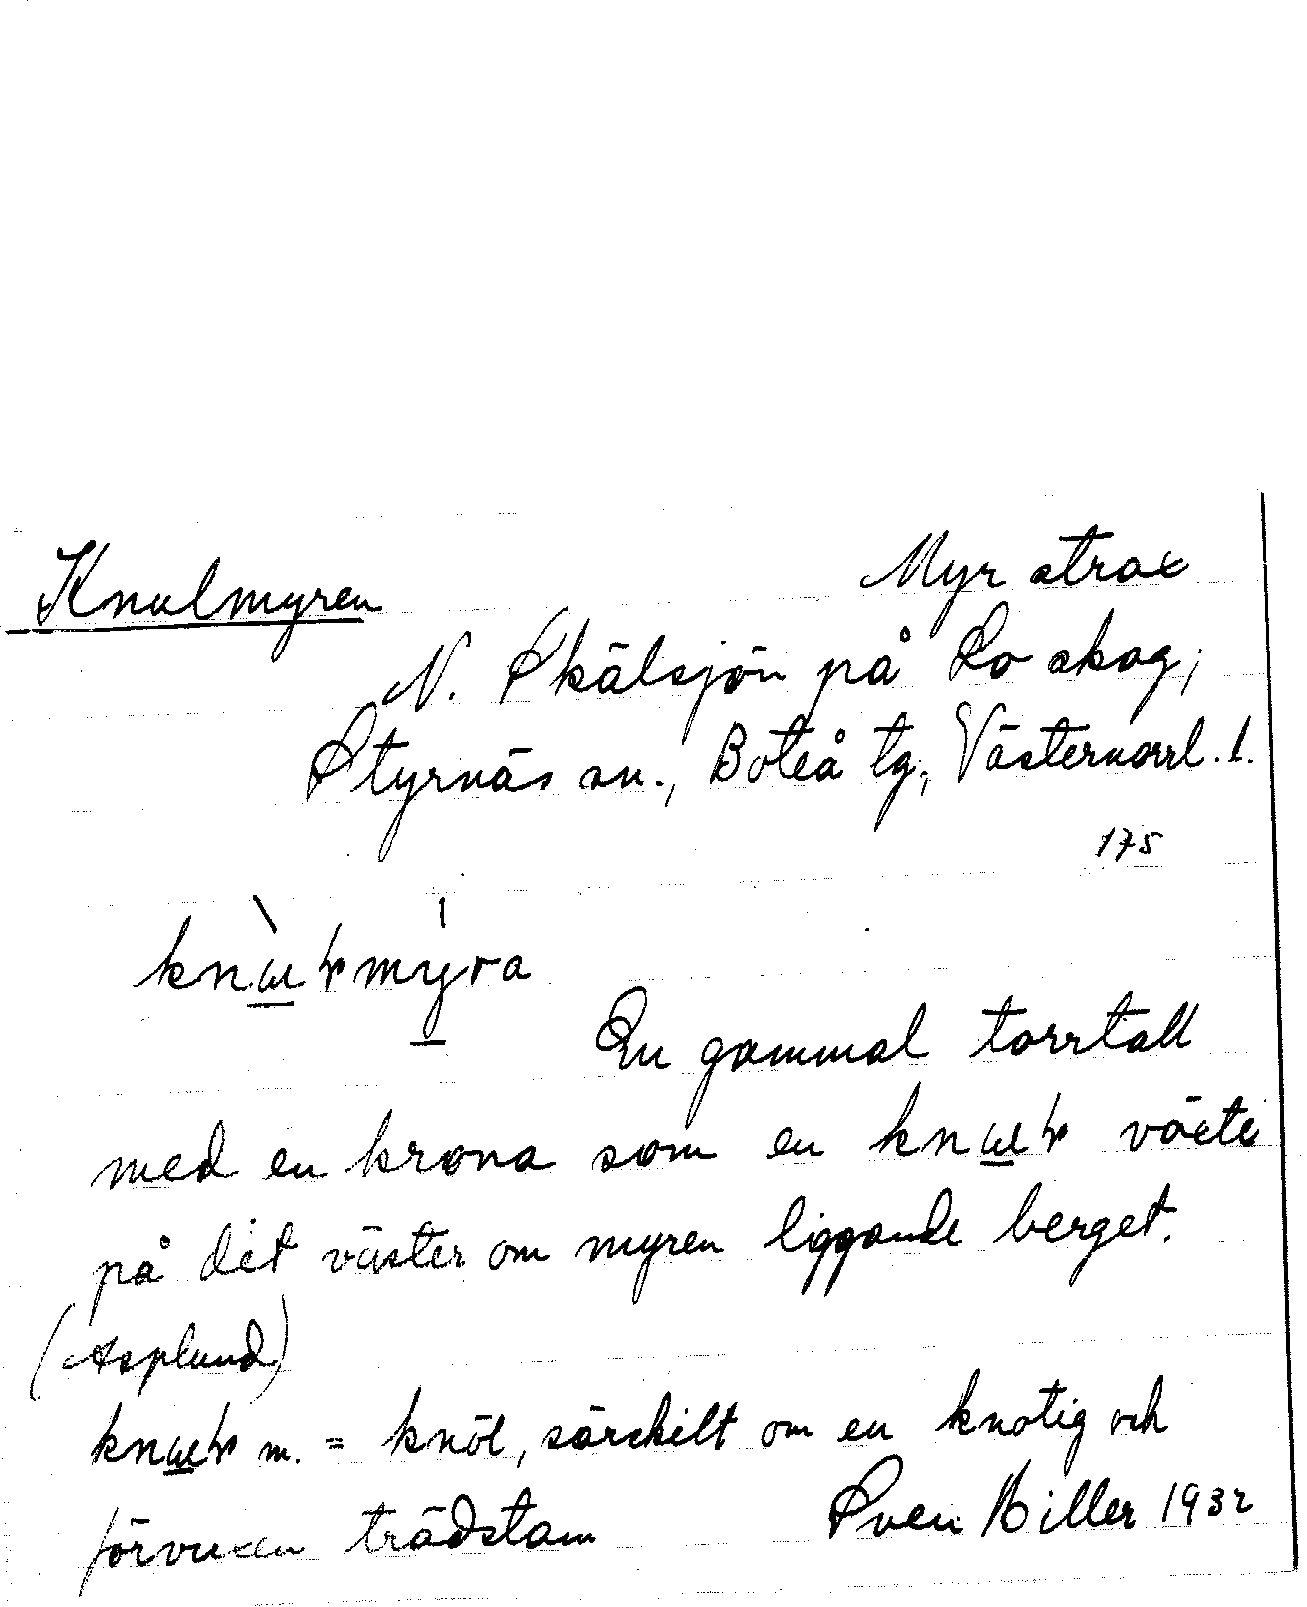 Knulmyren
Myr strax
N. Skälsjön på Lo skog,
Styrnäs sn., Boteå tg, Västernorrl. l.
175
En gammal torrtall
med en krona som en växte
på det väster om myren liggande berget.
(Asplund)
m. = knöl, särskilt om en knotig och
förvuxen trädstam
Sven Biller 1932